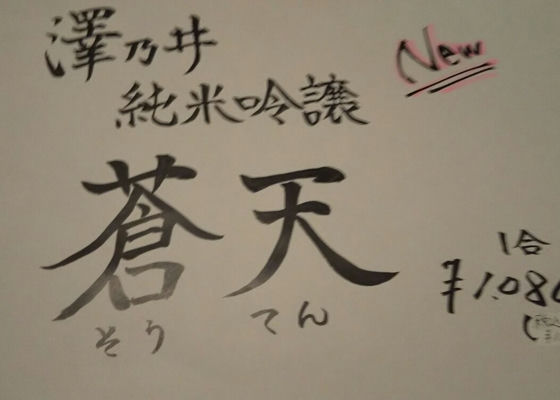 澤乃井
New
純米吟譲
蒼天
そうてん
1合
¥1.080